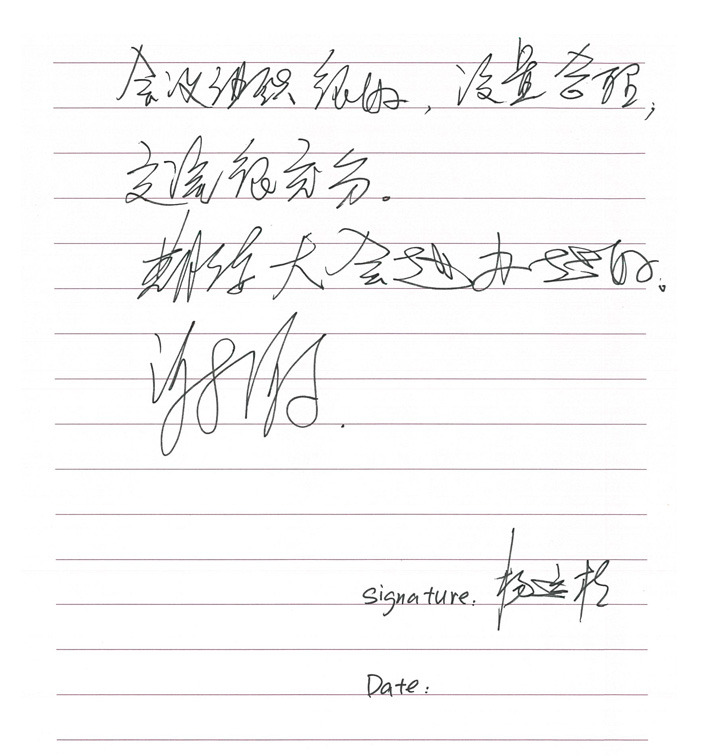 会议组织很好，设置合理，
交流很充分。
期待大会越办越好。
谢谢.
Signature: 杨
Date: